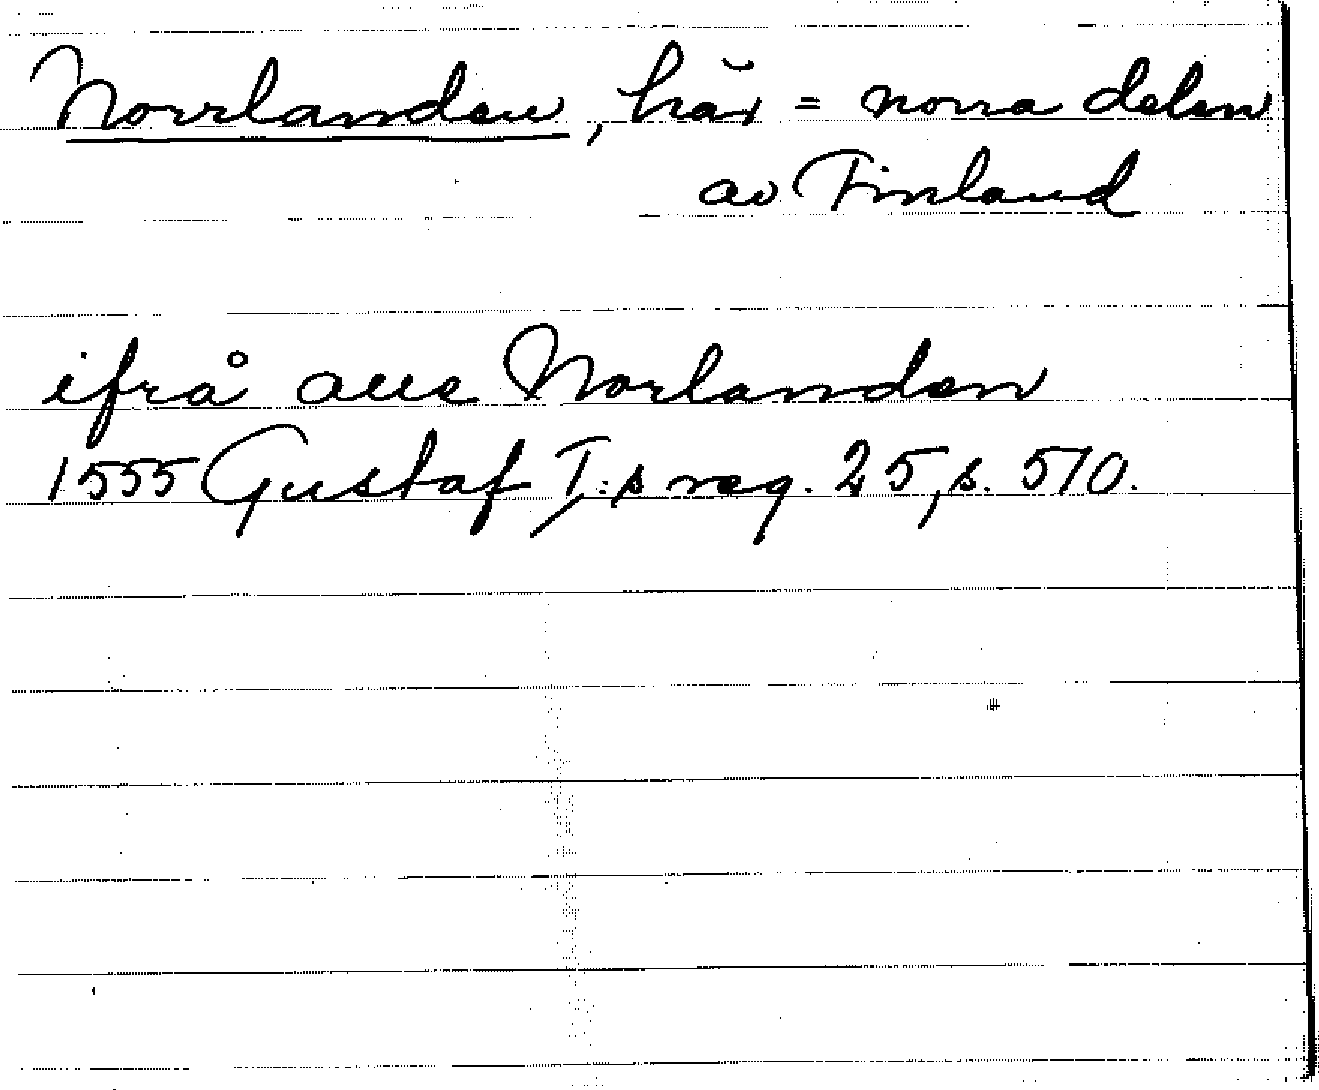 Norrlanden, här = norra delen
av Finland
ifrå alle Norlanden
1555 Gustaf I:s reg. 25, s. 510.